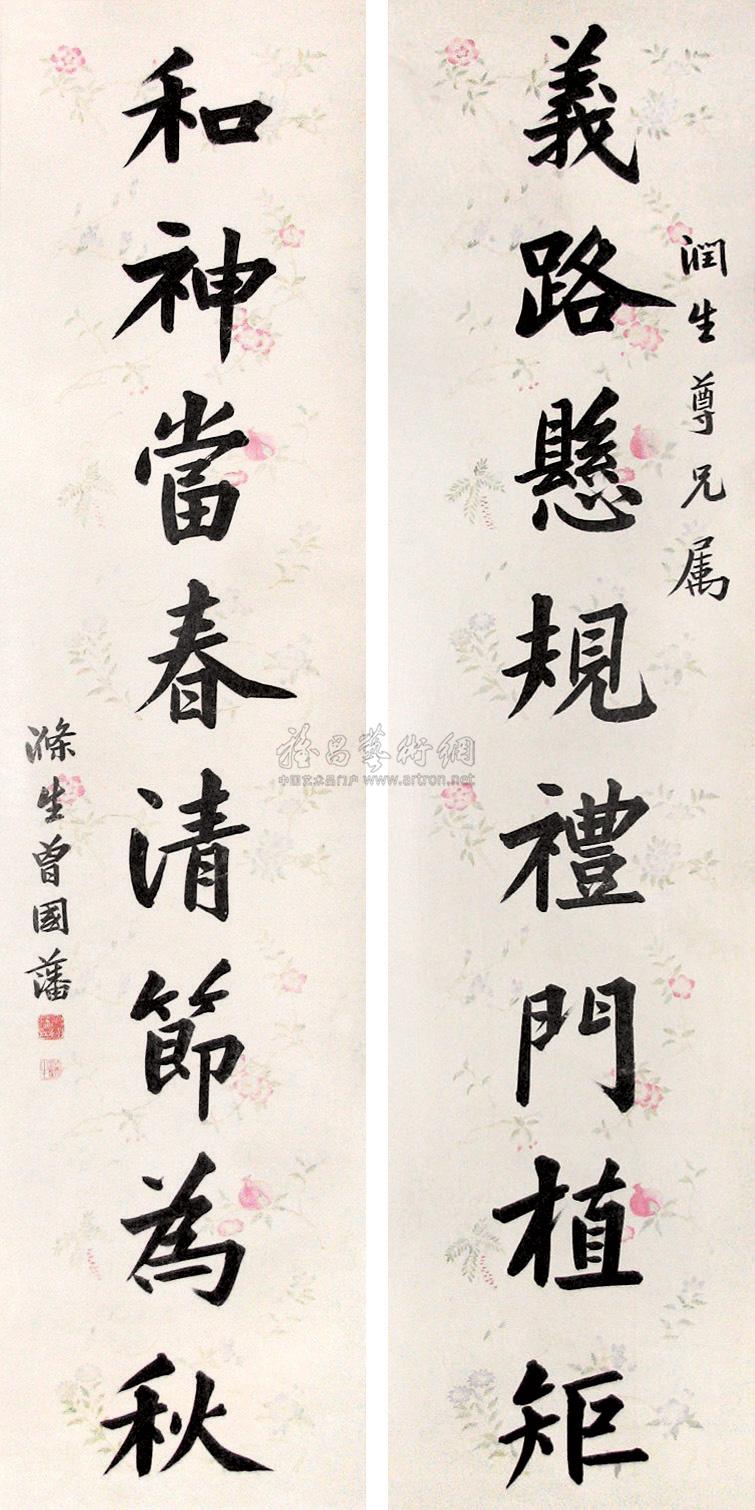 潤生尊兄属
義路懸規禮門植矩
和神當春清節為秋
滌生曾國藩
雅昌藝術網
中国艺术品门户 www.artron.net